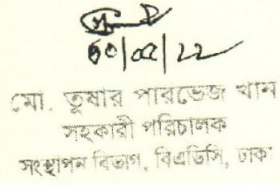 ৩০/০৫/২২
মো. তুষার পারভেজ খান
সহকারী পরিচালক
সংস্থাপন বিভাগ, বিএডিসি, ঢাকা